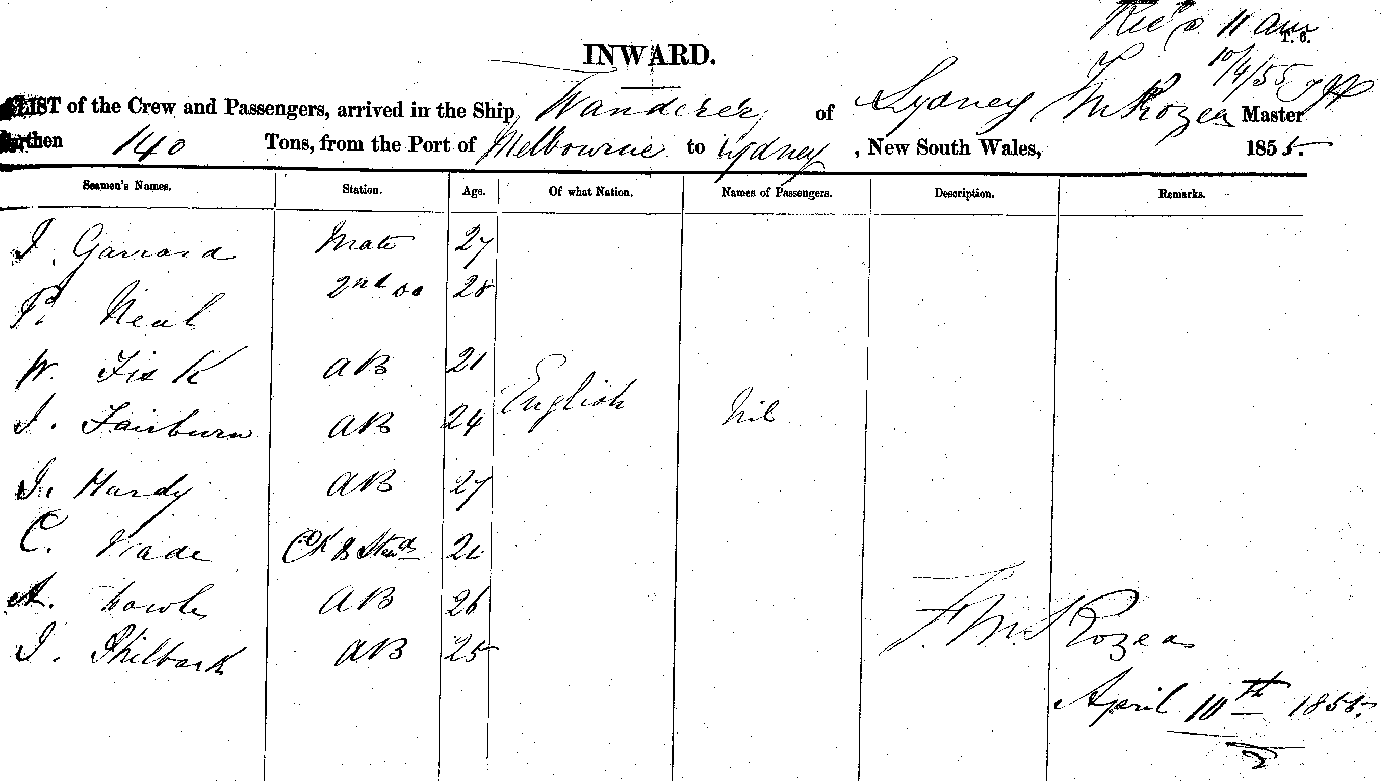 Rec'd 11 am
T. O.
10/4/55
INWARD.
LIST of the Crew and Passengers, arrived in the Ship Wanderer of Sydney F McRozea Master
Burthen 140 Tons, from the Port of Melbourne to Sydney, New South Wales, 1855.
Seamen's Names. Station. Age. Of what Nation. Names of Passengers. Description. Remarks.
J. Garrard Mate 27
P. Neal 2nd do 28
W. Fisk AB 21
J. Fairburn AB 24 English Nil
J. Hardy AB 27
C. Wade Ck & Stewd 21
A. Fowler AB 26
J. Philbark AB 25
F. McRozea
April 10th 1855.